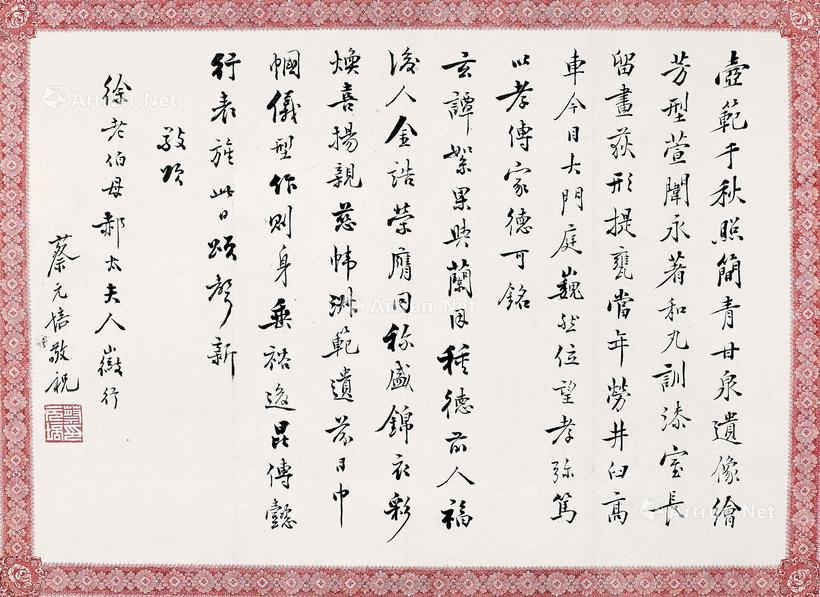 壺範千秋照簡青甘泉遺像繪
芳型萱闈永著和丸訓漆室長
留畫荻形提甕當年勞井臼高
車今日大門庭巍然位望孝弥篤
以孝傳家德可銘
玄譚絮果與蘭因種德前人福
後人金誥榮膺同称盛錦衣彩
煥喜揚親慈幃淑範遺芬日巾
幗儀型作則身垂裕後昆傳懿
行表旌此日頌聲新
敬頌
徐老伯母郝太夫人徽行
蔡元培敬祝
Artron.Net
Artron.Net
Artron.Net
Artron.Net